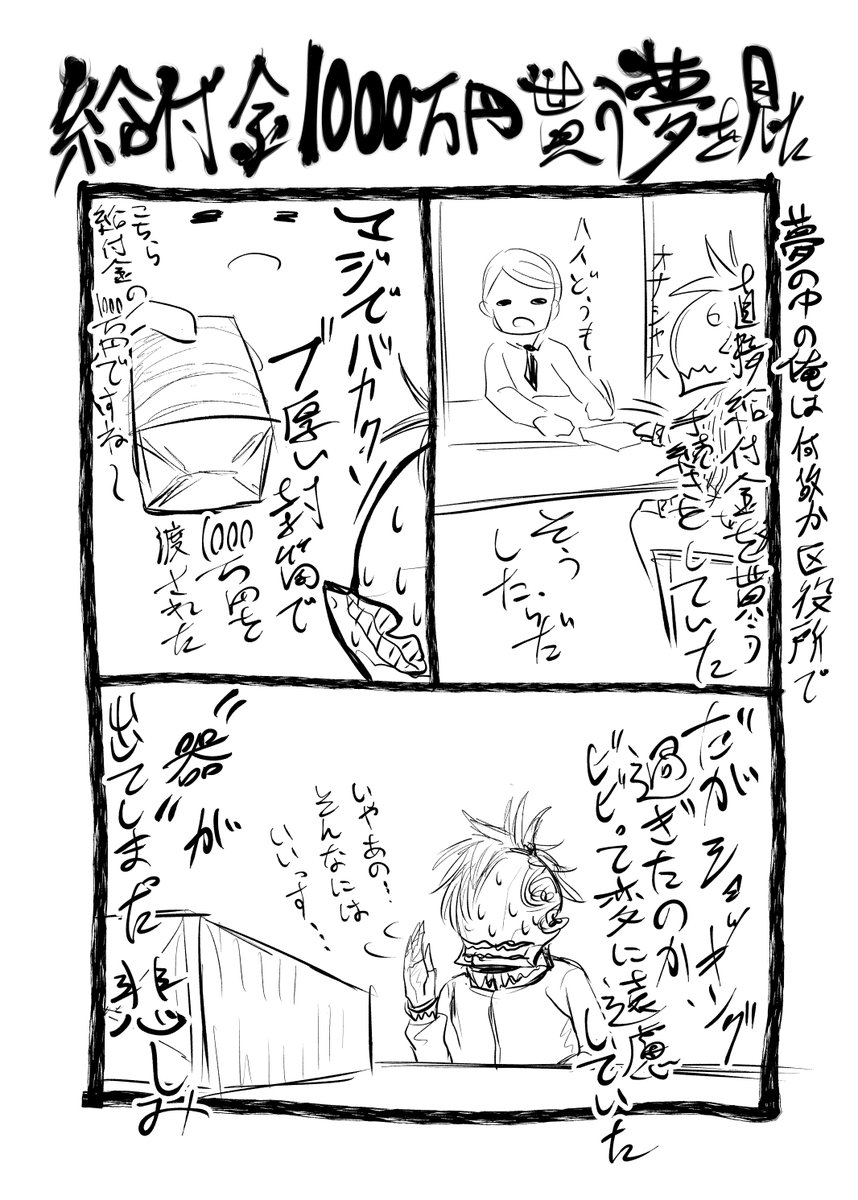 給付金1000万円貰う夢を見た
夢の中の俺は何故か区役所で
直接給付金を貰う
手続きをしていた
オナシャス
ハイどうもー
そう
したらだ
マジでバカクソ
ブ厚い封筒で
1000万円を
渡された
こちら
給付金の
1000万円ですね〜
だがショッキング
過ぎたのか
ビビって変に遠慮
していた
いやあの…
そんなには
いいっす…
"器"が
出てしまった
悲しみ